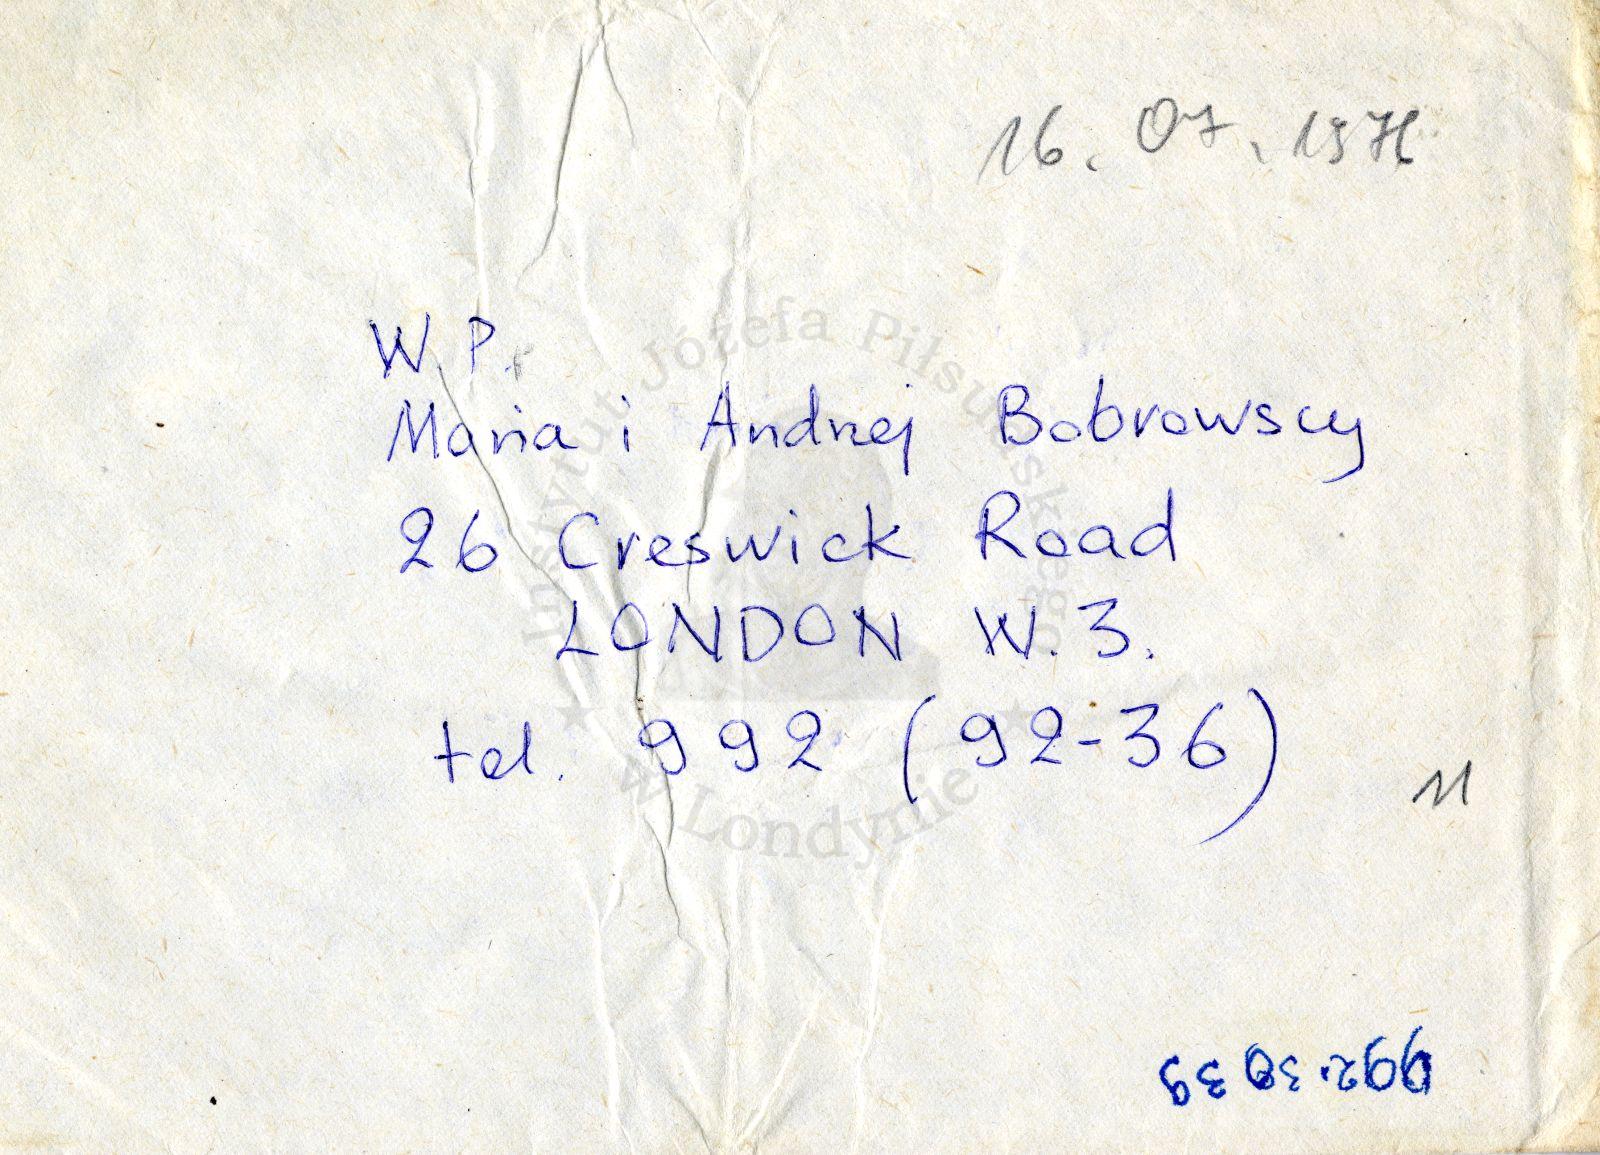 16. 07. 1976
W.P.
Maria i Andrzej Bobrowscy
26 Creswick Road
LONDON W.3.
tel. 992 (92-36)
11
Instytut Józefa Piłsudskiego
w Londynie